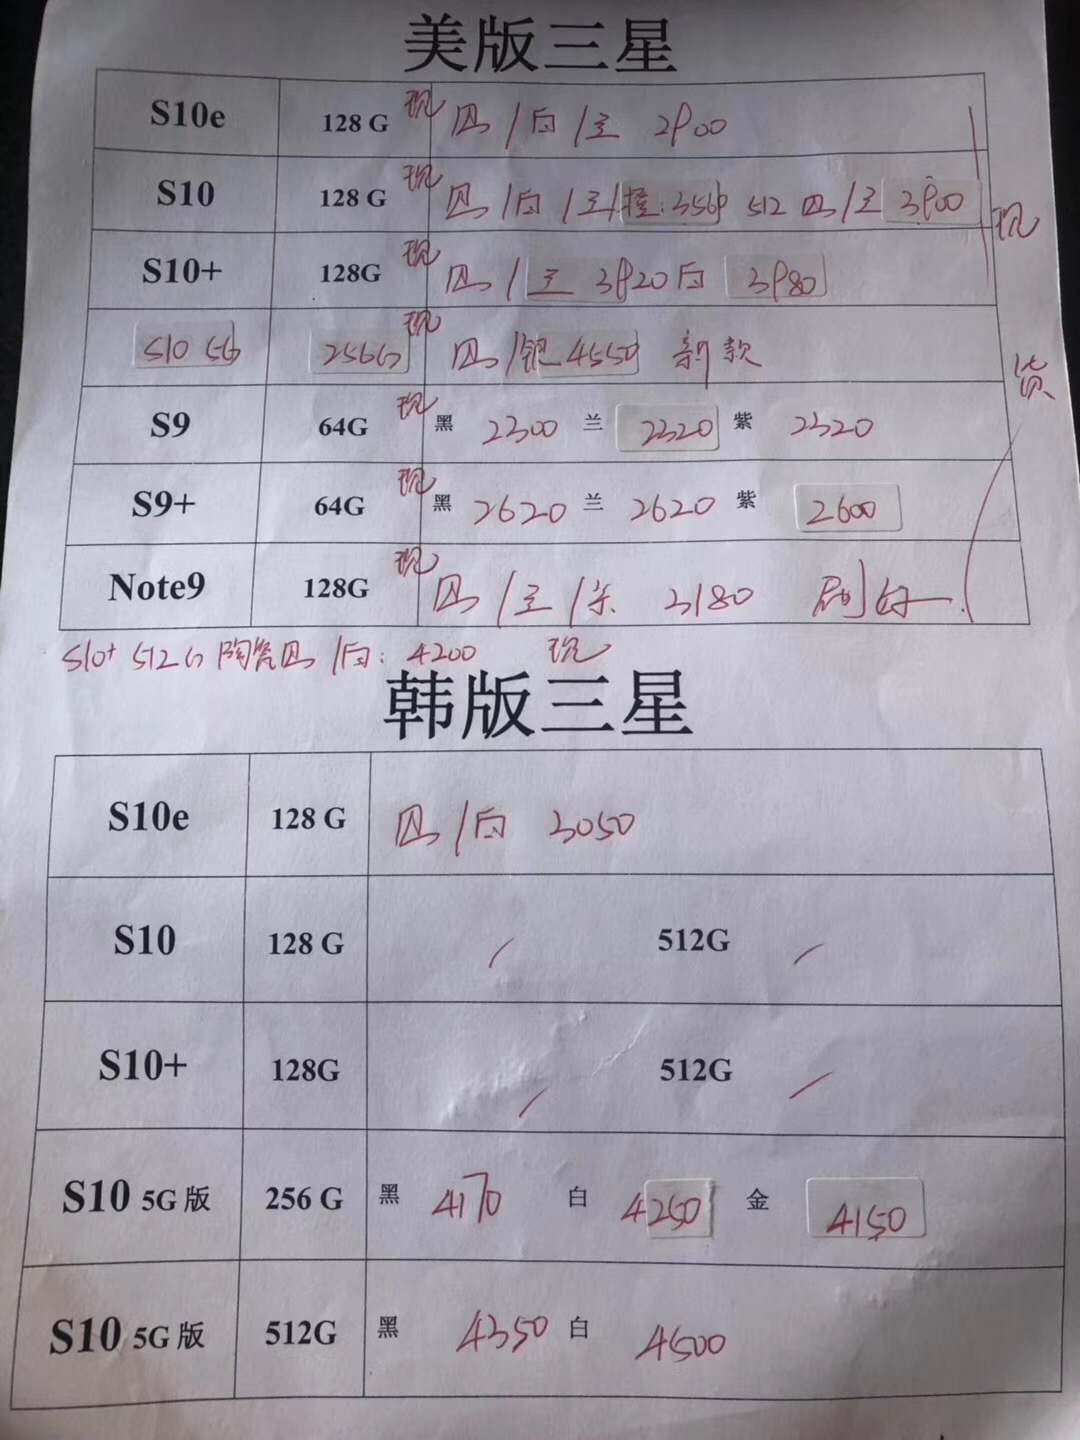 美版三星
S10e 128 G 现 黑/白/兰 2900
S10 128 G 现 黑/白/兰/ 3560 512 黑/兰 3900
S10+ 128G 现 黑/兰 3920 白 3980
S10 5G 256G 现 黑/银 4550 新款
S9 64G 现 黑 2300 兰 2320 紫 2320
S9+ 64G 现 黑 2620 兰 2620 紫 2600
Note9 128G 现 黑/兰/ 3180 刷好
现货
S10+ 512G 陶瓷黑/白: 4200 现
韩版三星
S10e 128 G 黑/白 3050
S10 128 G / 512G /
S10+ 128G / 512G /
S10 5G版 256 G 黑 4170 白 4250 金 4150
S10 5G版 512G 黑 4350 白 4500